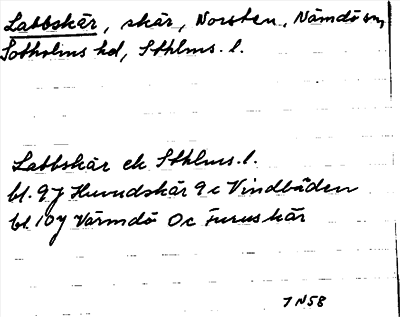 Labbskär, skär, Norsten, Nämdö sn,
Sotholms hd, Sthlms. l.
Labbskär ek Sthlms. l.
bl. 9 J Huvudskär 9 c Vindbåden
bl. 10 J Värmdö 0 c Furuskär
7 N 58